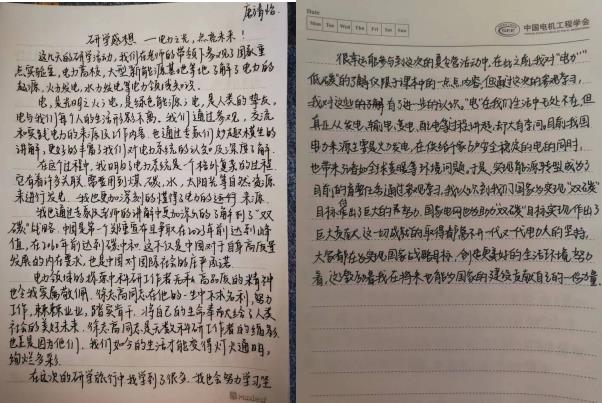 研学感想 —电力之光,点亮未来!
这几天的研学活动,我们在老师的带领下参观了国家重
点实验室,电力高校,大型新能源基地等地了解了电力的
起源,火力发电,水力发电等电力领域知识。
电,是光明之火;电,是绿色能源;电,是人类的挚友。
电与我们每个人的生活形影不离。我们,通过参观,交流
和实践电力的来源及工作内容,也通过专家们妙趣横生的
讲解,更好的丰富了我们对电力系统的认知及深度了解。
在这个过程中,我明白了电力系统是一个格外复杂的过程
它有着许多关联,需要用到煤、碳、水,太阳能等自然资源
来进行发电。我也更加深刻的懂得了电力的运行来源
我也通过专家及老师的讲解中更加深入的了解到了“双
碳”战略。中国是第一个郑重宣布且争取在2030年前达到峰
值,在2060年前达到碳中和。这不仅是中国对于自身高质量
发展的内在要求,也是中国对国际社会的庄严承诺
电力领域的探索中科研工作者无私、高品质的精神
也令我实属敬佩。 同志在他的一生中不求名利,努力
工作,兢兢业业,踏实肯干,将自己的生命奉献给了人类
社会的美好未来。 同志是无数科研工作者的缩影
也正是因为他们,我们如今的生活才能变得灯火通明,
绚烂多彩。
在这次的研学旅行中我学到了很多,我也会努力学习
Date
Mon Tue Wed Thu Fri Sat Sun
CSEE 中国电机工程学会
很幸运能参与到这次的夏令营活动中,在此前,我对“电力”“
低碳”的了解仅限于课本中的一点点内容,但通过这次的参观学习,
我对这些的了解有了进一步的认识。“电”在我们生活中无处不在,但
真正从发电、输电、变电、配电等过程讲起,却大有学问。目前,我国
电力来源主要是火力发电,在供给千家万户安全稳定的电的同时,
也带来了诸如全球变暖等环境问题,于是,实现能源转型成为了
目前的首要任务。通过参观学习,我认识到我们国家为实现“双碳”
目标作出了巨大的努力,国家电网也为助力“双碳”目标实现作出了
巨大贡献,这一切成就的取得都离不开一代又一代电力人的坚持。
大家都在为实现国家战略目标,创造更美好的生活环境努力
着,这激励着我在将来也能为国家的建设贡献自己的一份力量。